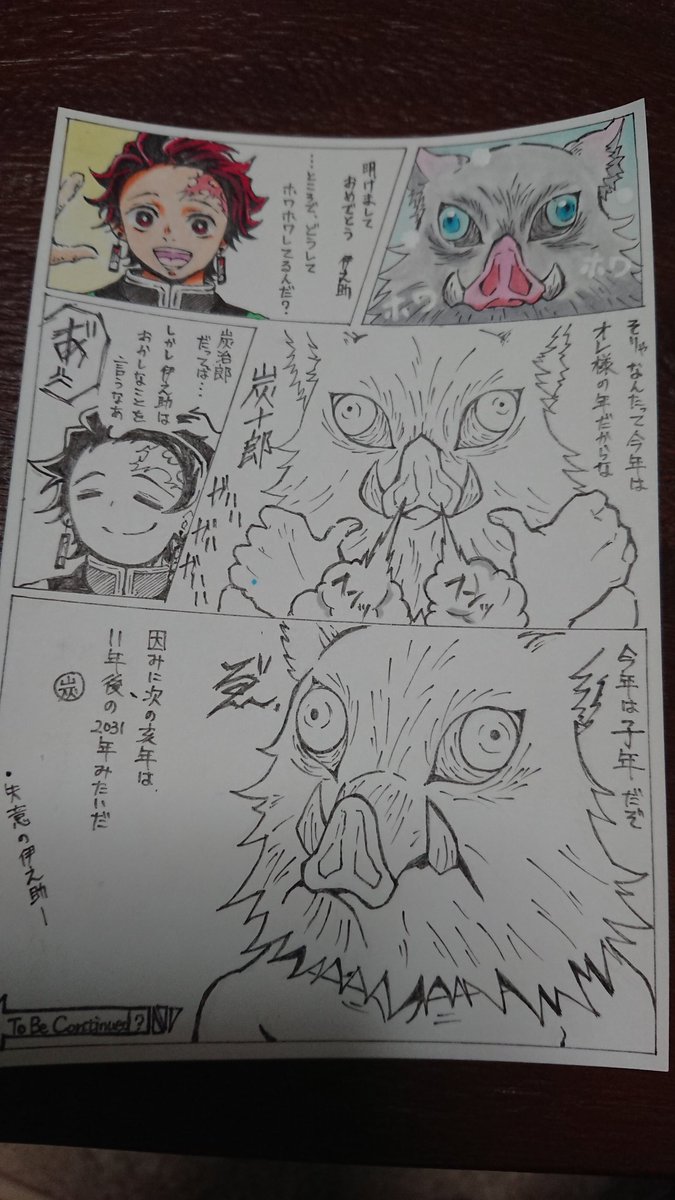 ホワ
ホワ
明けまして
おめでとう 伊之助
…ところで、どうして
ホワホワしてるんだ?
そりゃ なんたって今年は
オレ様の年だからな
炭十郎
フンッ
フンッ
ガハハ
炭治郎
だってば…
しかし伊之助は
おかしなことを
言うなあ
あ"
今年は子年だぞ
因みに次の亥年は、
11年後の2031
年みたいだ
炭
・失意の伊之助ー
To Be Continued?